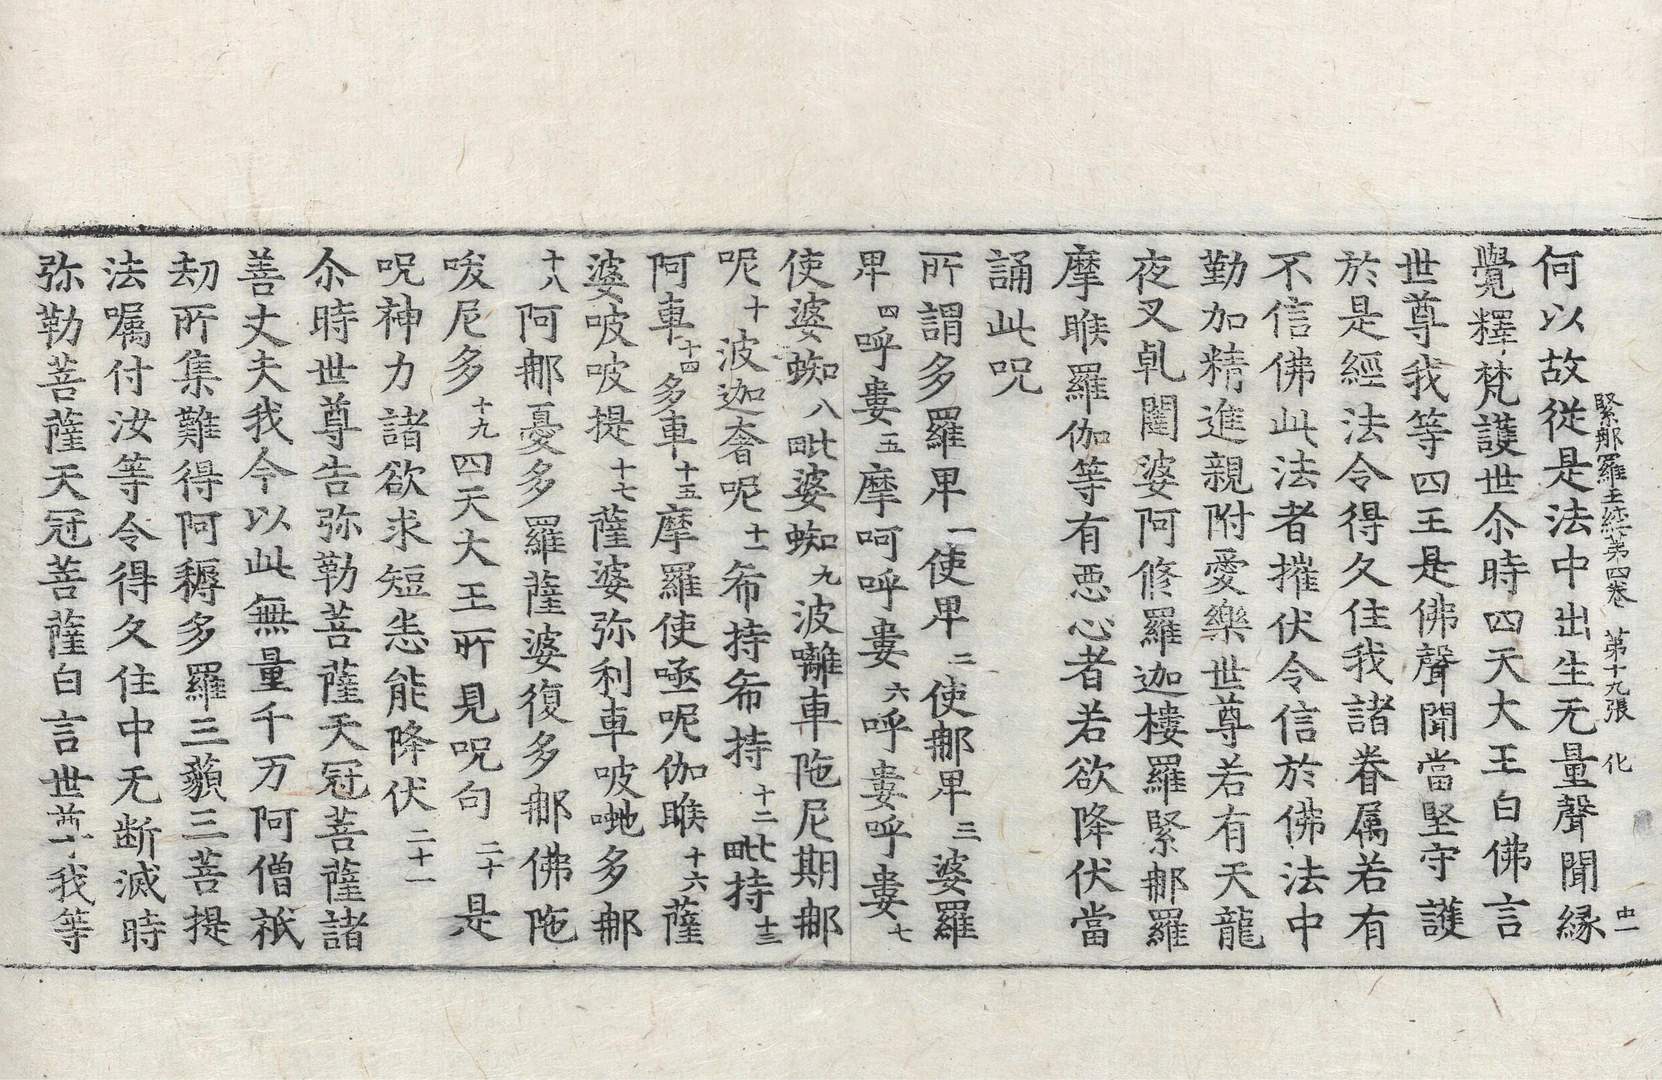 緊那羅王經第四卷 第十九張 化
何以故從是法中出生无量聲聞縁
覺釋梵護世尒時四天大王白佛言
世尊我等四王是佛聲聞當堅守護
於是經法令得久住我諸眷属若有
不信佛此法者摧伏令信於佛法中
勤加精進親附愛樂世尊若有天龍
夜叉乹闥婆阿修羅迦樓羅緊那羅
摩睺羅伽等有悪心者若欲降伏當
誦此呪
所謂多羅卑一使卑二使那卑三婆羅
卑四呼婁五摩呵呼婁六呼婁呼婁七
使婆蜘八毗婆蜘九波囄車陁尼期那
呢十波迦奢呢十一希持希持十二毗持十三
阿車十四多車十五摩羅使亟呢伽睺十六薩
婆岥岥提十七薩婆弥利車岥哋多那
十八阿那憂多羅薩婆復多那佛陁
唆尼多十九四天大王所見呪句二十是
呪神力諸欲求短恙能降伏二十一
尒時世尊告弥勒菩薩天冠菩薩諸
善丈夫我今以此無量千万阿僧祇
劫所集難得阿耨多羅三藐三菩提
法嘱付汝等令得久住中无断滅時
弥勒菩薩天冠菩薩白言世尊我等